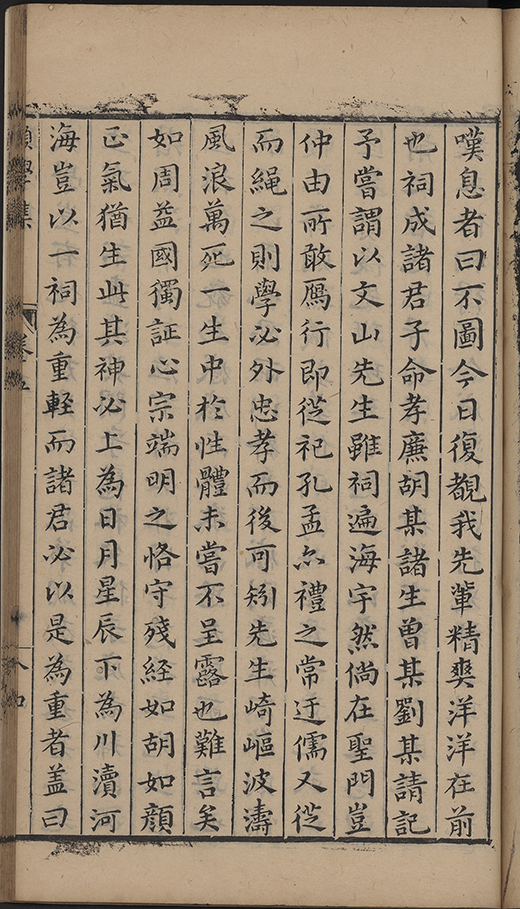 嘆息者曰不圖今日復覩我先軰精爽洋洋在前
也祠成諸君子命孝廉胡某諸生曽某劉某請記
予嘗謂以文山先生雖祠遍海宇然倘在聖門豈
仲由所敢鴈行即從祀孔孟亦禮之常迂儒又從
而繩之則學必外忠孝而後可矧先生崎嶇波濤
風浪萬死一生中於性體未嘗不呈露也難言矣
如周益國獨証心宗端明之恪守殘経如胡如顔
正氣猶生此其神必上為日月星辰下為川瀆河
海豈以一祠為重軽而諸君必以是為重者盖曰
願學集
卷五